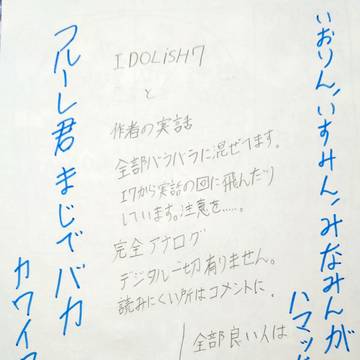 いおりん、いすみん、みなみんが
ハマッ
IDOLiSH7
と
作者の実話
全部バラバラに混ぜてます。
i7から実話の回に飛んだり
しています。注意を……。
完全アナログ
デジタル一切有りません。
読みにくい所はコメントに.
全部良い人は
フルーレ君まじでバカ
カワイ